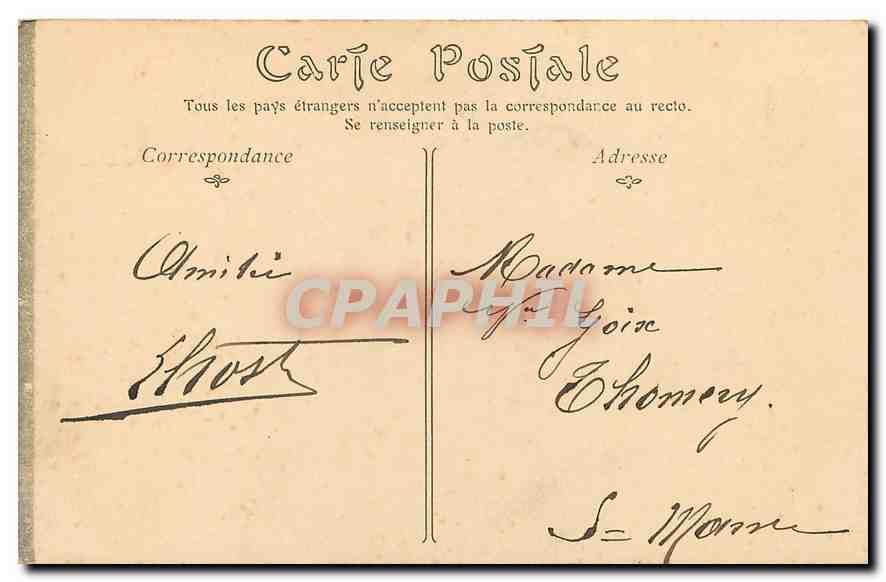 Carte Postale
Tous les pays étrangers n'acceptent pas la correspondance au recto.
Se renseigner à la poste.
Correspondance
Adresse
Amitié
Madame
Vve Goix
Thomery.
S= Marne
CPAPHIL